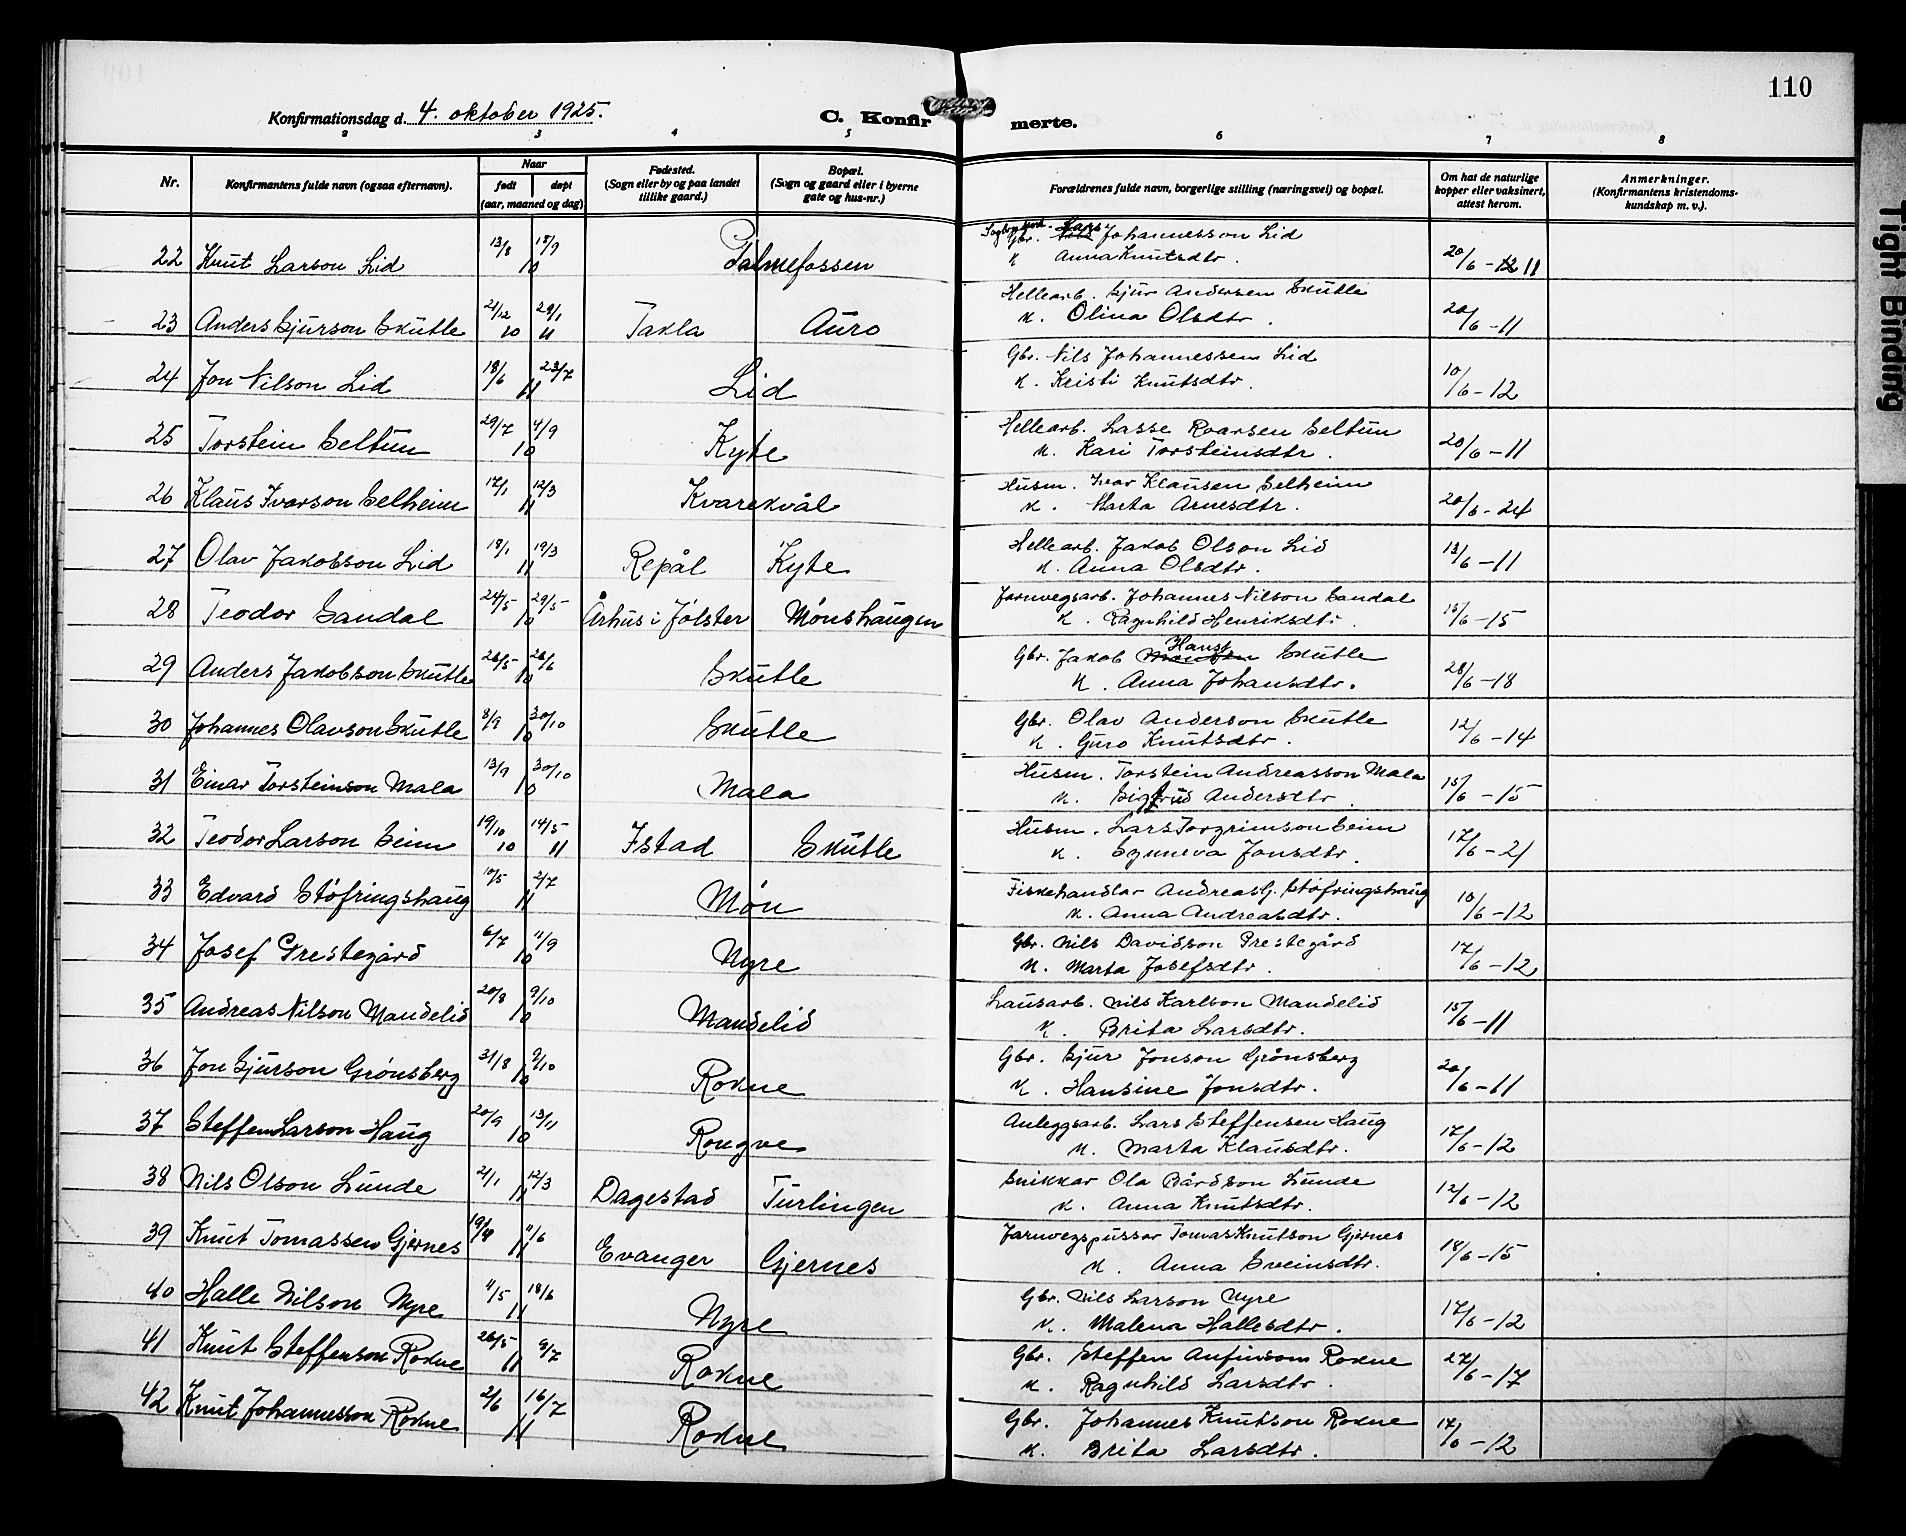 110
Konfirmationsdag d. 4. oktober 1925.
C. Konfirmerte.
2 3 4 5 6 7 8
Nr.
Konfirmantens fulde navn (ogsaa efternavn).
Naar
født døpt
(aar, maaned og dag)
Fødested.
(Sogn eller by og paa landet
tillike gaard.)
Bopæl.
(Sogn og gaard eller i byerne
gate og hus-nr.)
Forældrenes fulde navn, borgerlige stilling (næringsvei) og bopæl.
Om hat de naturlige
kopper eller vaksinert,
attest herom.
Anmerkninger.
(Konfirmantens kristendoms-
kundskap m. v.).
22 Knut Larson Lid 13/8 18/9 10 Palmefossen Gbr. Lars Johannesson Lid
K Anna Knutsdtr. 20/6 - 11
23 Anders Sjurson Skutle 21/12 10 29/1 11 Takla Auro Hellearb. Sjur Andersen Skutle
K. Olina Olsdtr. 20/6 - 11
24 Jon Nilson Lid 18/6 23/7 11 Lid Gbr. Nils Johannessen Lid
K. Kristi Knutsdtr. 10/6 - 12
25 Torstein Seltun 29/7 4/9 10 Kyte Hellearb. Lasse Roarsen Seltun
K. Kari Torsteinsdtr. 20/6 - 11
26 Klaus Ivarson Selheim 17/1 12/3 11 Kvarekvål Husm. Ivar Klausen Selheim
K. Marta Arnesdtr. 20/6 - 24
27 Olav Jakobson Lid 18/1 19/3 11 Repål Kyte Hellearb. Jakob Olson Lid
K. Anna Olsdtr. 13/6 - 11
28 Teodor Sandal 24/5 29/5 10 Århus i Jølster Mønshaugen Jarnvegsarb. Johannes Nilson Sandal
K. Ragnhild Henriksdtr. 15/6 - 15
29 Anders Jakobson Skutle 26/5 26/6 10 Skutle Gbr. Jakob Hans Skutle
K. Anna Johansdtr. 28/6 - 18
30 Johannes Olavson Skutle 8/9 30/10 10 Skutle Gbr. Olav Anderson Skutle
K. Guro Knutsdtr. 12/6 - 14
31 Einar Torsteinson Mala 13/9 30/10 10 Mala Husm. Torstein Andreasson Mala
K. Sigfrid Andersdtr. 15/6 - 15
32 Teodor Larson Seim 19/10 10 14/5 11 Istad Skutle Husm. Lars Torgrimson Seim
K. Synneva Jonsdtr. 17/6 - 21
33 Edvard Støfringshaug 10/5 2/7 11 Møn Fiskehandlar Andreas G. Støfringshaug
K. Anna Andreasdtr. 10/6 - 12
34 Josef Prestegård 6/7 11/9 10 Nyre Gbr. Nils Davidson Prestegård
K. Marta Josefsdtr. 17/6 - 12
35 Andreas Nilson Mandelid 20/8 9/10 10 Mandelid Lausarb. Nils Karlson Mandelid
K. Brita Larsdtr. 15/6 - 11
36 Jon Sjurson Grønsberg 31/8 9/10 10 Rokne Gbr. Sjur Jonson Grønsberg
K. Hansine Jonsdtr. 20/6 - 11
37 Steffen Larson Haug 20/9 13/11 10 Rongve Anleggsarb. Lars Steffensen Haug
K. Marta Klausdtr. 17/6 - 12
38 Nils Olson Lunde 2/1 12/3 11 Dagestad Turlingen Snikkar Ola Bårdson Lunde
K. Anna Knutsdtr. 12/6 - 12
39 Knut Tomassen Gjernes 11/6 11 Evanger Gjernes Jarnvegspussar Tomas Knutson Gjernes
K. Anna Sveinsdtr. 18/6 - 15
40 Halle Nilson Nyre 4/5 18/6 11 Nyre Gbr. Nils Larson Nyre
K. Malena Hallesdtr. 17/6 - 12
41 Knut Steffenson Rokne 26/5 9/7 11 Rokne Gbr. Steffen Anfinsson Rokne
K. Ragnhild Larsdtr 27/6 - 17
42 Knut Johannesson Rokne 2/6 16/7 11 Rokne Gbr. Johannes Knutson Rokne
K. Brita Larsdtr. 17/6 - 12
Tight Binding